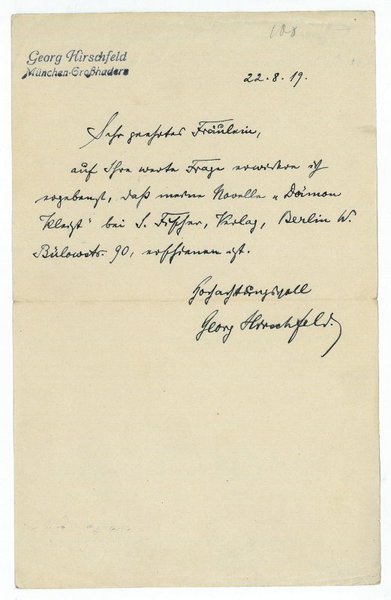 108
Georg Hirschfeld
München-Großhadern
22. 8. 19.
Sehr geehrtes Fräulein,
auf Ihre werte Frage erwidere ich
ergebenst, daß meine Novelle „Dämon
Kleist" bei S. Fischer, Verlag, Berlin W.
Bülowstr. 90, erschienen ist.
Hochachtungsvoll
Georg Hirschfeld.